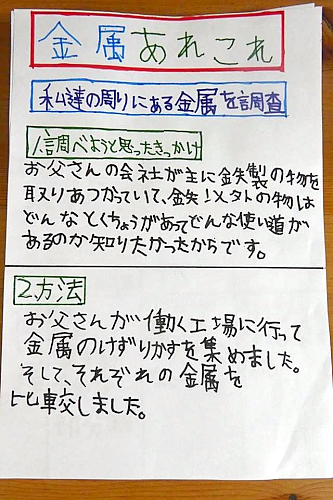 金属あれこれ
私達の周りにある金属を調査
1調べようと思ったきっかけ
お父さんの会社が主に鉄製の物を
取りあつかっていて、鉄以外の物は
どんなとくちょうがあってどんな使い道が
あるのか知りたかったからです。
2方法
お父さんが働く工場に行って
金属のけずりかすを集めました。
そして、それぞれの金属を
比較しました。